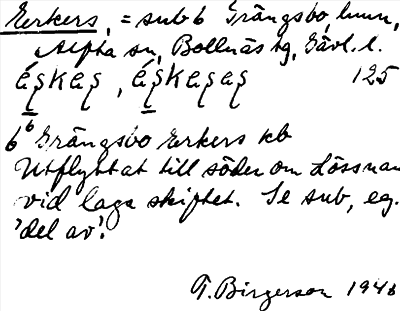 Erkers, = sub 6 Grängsbo, hmn,
Alfta sn, Bollnäs tg, Gävl. l.
éskes, éskeses 125
6 6 Grängsbo Erkers kb
Utflyttat till söder om Lössnan
vid laga skiftet. Se sub, eg.
'del av'.
T. Birgerson 1946